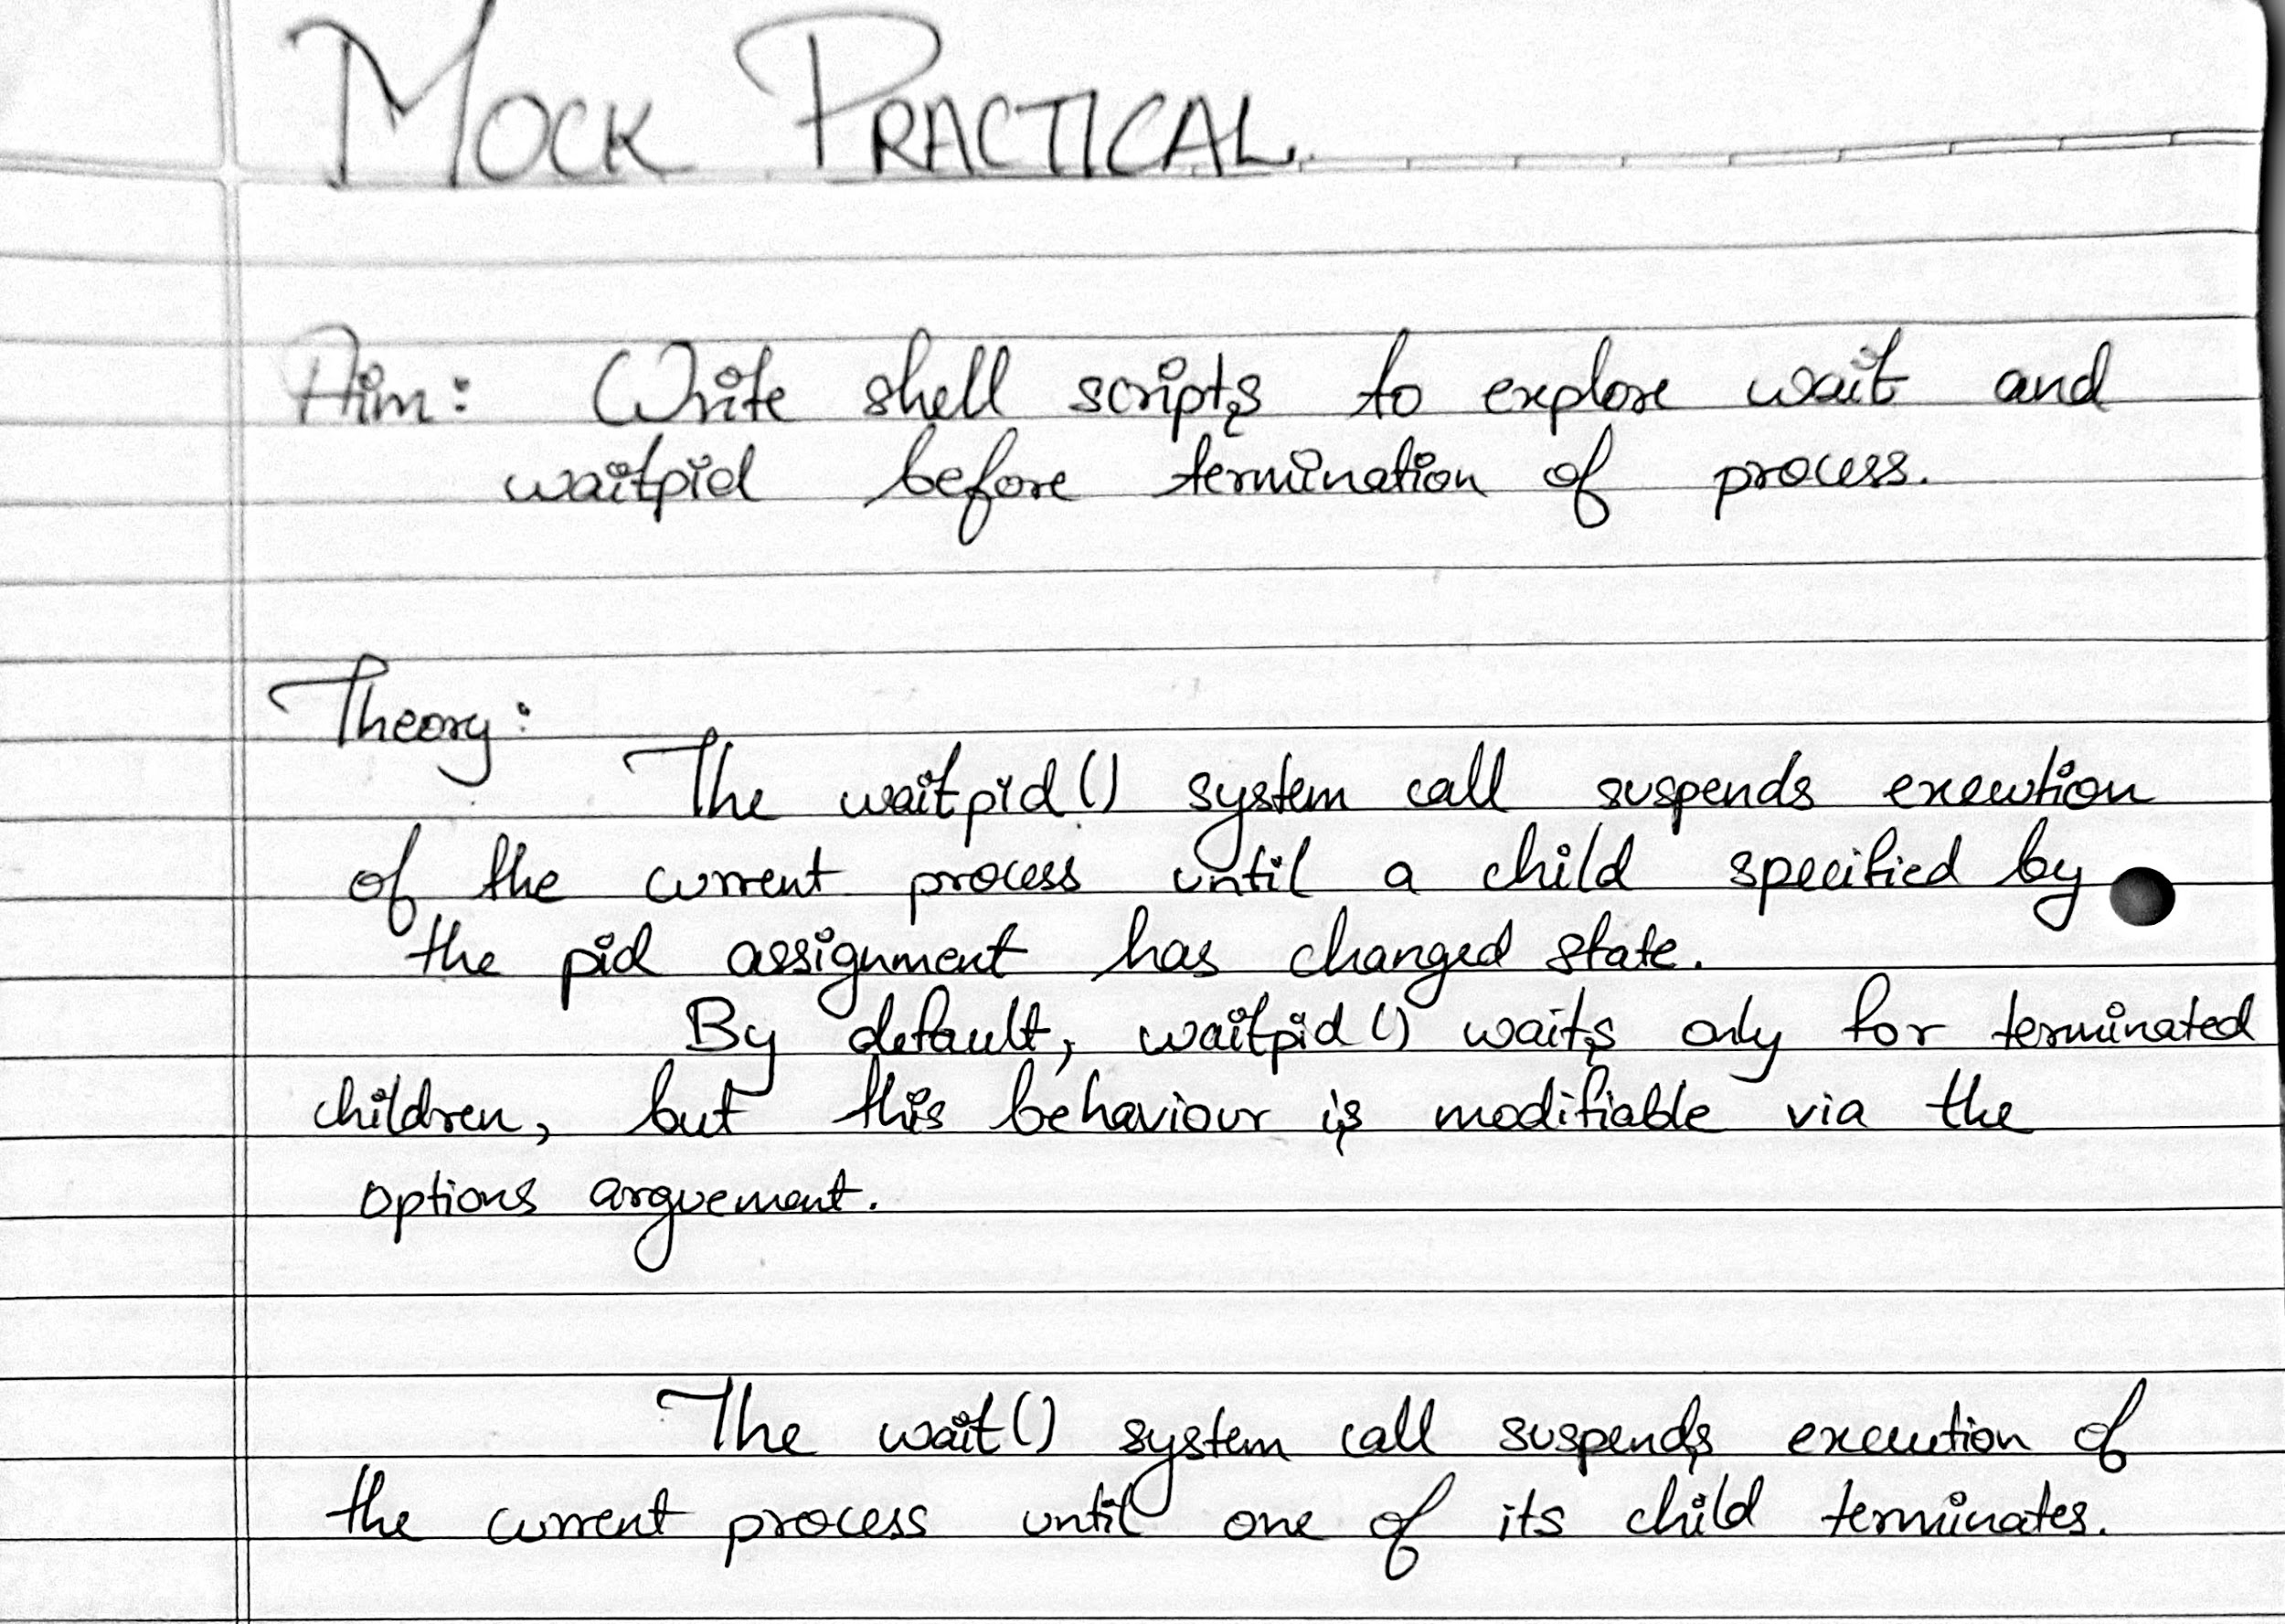 MOCK PRACTICAL.
Aim: Write shell scripts to explore wait and
waitpid before termination of process.
Theory:
The waitpid() system call suspends execution
of the current process until a child specified by
the pid assignment has changed state.
By default, waitpid() waits only for terminated
children, but this behaviour is modifiable via the
options arguement.
The wait() system call suspends execution of
the current process until one of its child terminates.